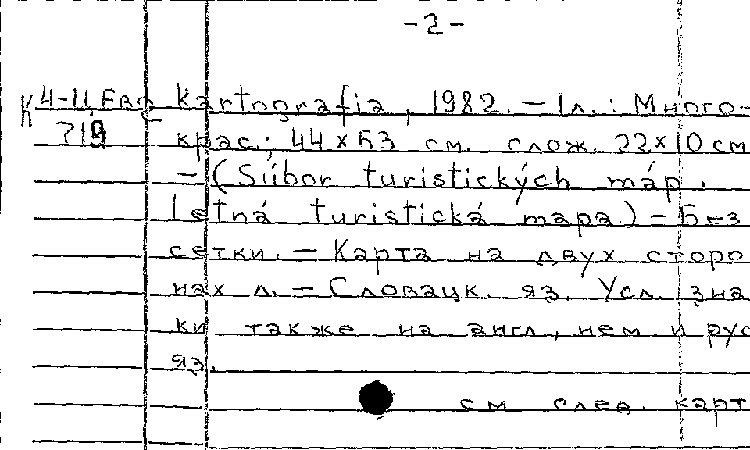 -2-
К4-11,Евг kartografia, 1982. - 1л.: Много-
719 крас.; 44x53 см. слож. 22x10 см
- (Súbor turistických máp.
letná turistická mapa) - Без
сетки. - Карта на двух сторо
нах л. - Словацк. яз. Усл. зна
ки также на англ, нем и рус
яз.
см след. карт